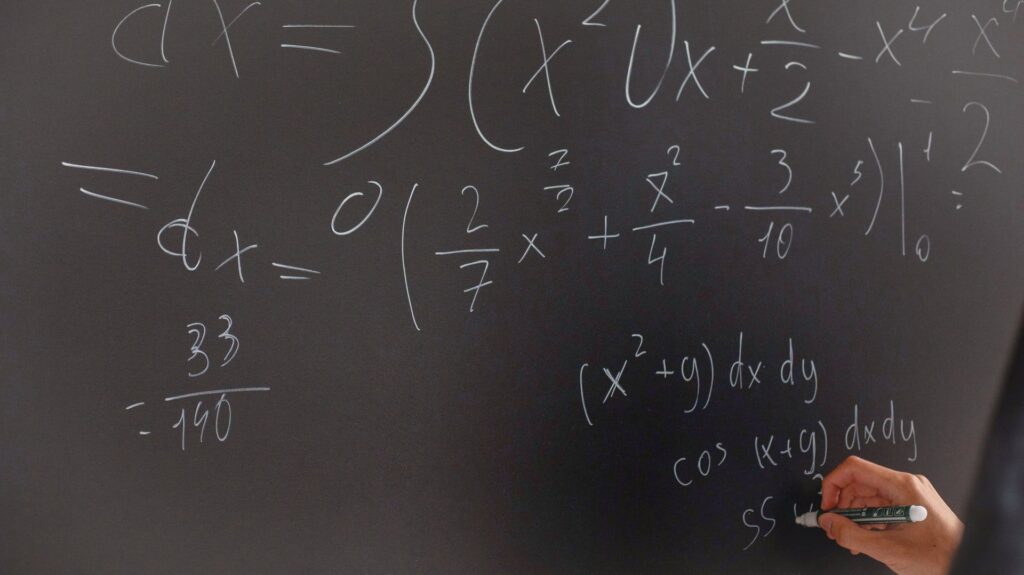 dx = ∫ (x² √x + x/2 - x⁴ - x⁴/2
= dx = 0 (2/7 x^7/2 + x²/4 - 3/10 x⁵)|¹₀ =
= 33/140
(x² + y) dx dy
cos (x+y) dx dy
SS